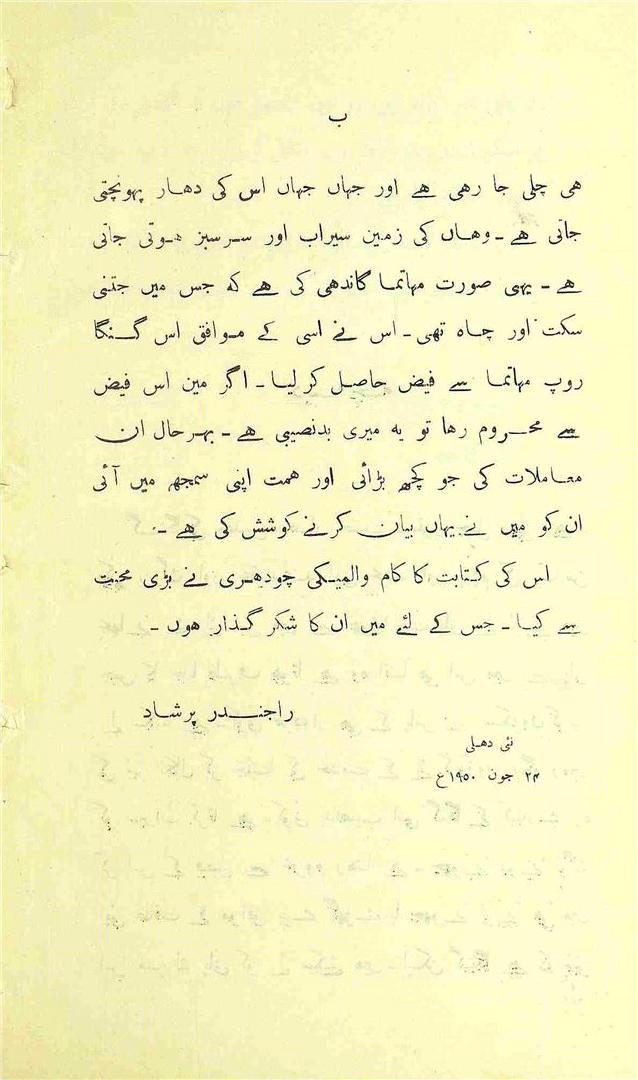 ب
ھی چلی جا رھی ھے اور جہاں جہاں اس کی دھار پہونچتی
جاتی ھے ۔ وھاں کی زمین سیراب اور سرسبز ھوتی جاتی
ھے ۔ یہی صورت مہاتما گاندھی کی ھے کہ جس میں جتنی
سکت اور چاہ تھی ۔ اس نے اسی کے موافق اس گنگا
روپ مہاتما سے فیض حاصل کر لیا ۔ اگر مین اس فیض
سے محروم رھا تو یہ میری بدنصیبی ھے ۔ بہرحال ان
معاملات کی جو کچھ بڑائی اور ھمت اپنی سمجھ میں آئی
ان کو میں نے یہاں بیان کرنے کوشش کی ھے ۔
اس کی کتابت کا کام والمیکی چودھری نے بڑی محنت
سے کیا ۔ جس کے لئے میں ان کا شکر گذار ھوں ۔
راجندر پرشاد
نئی دھلی
جون ۱۹۵۰ع